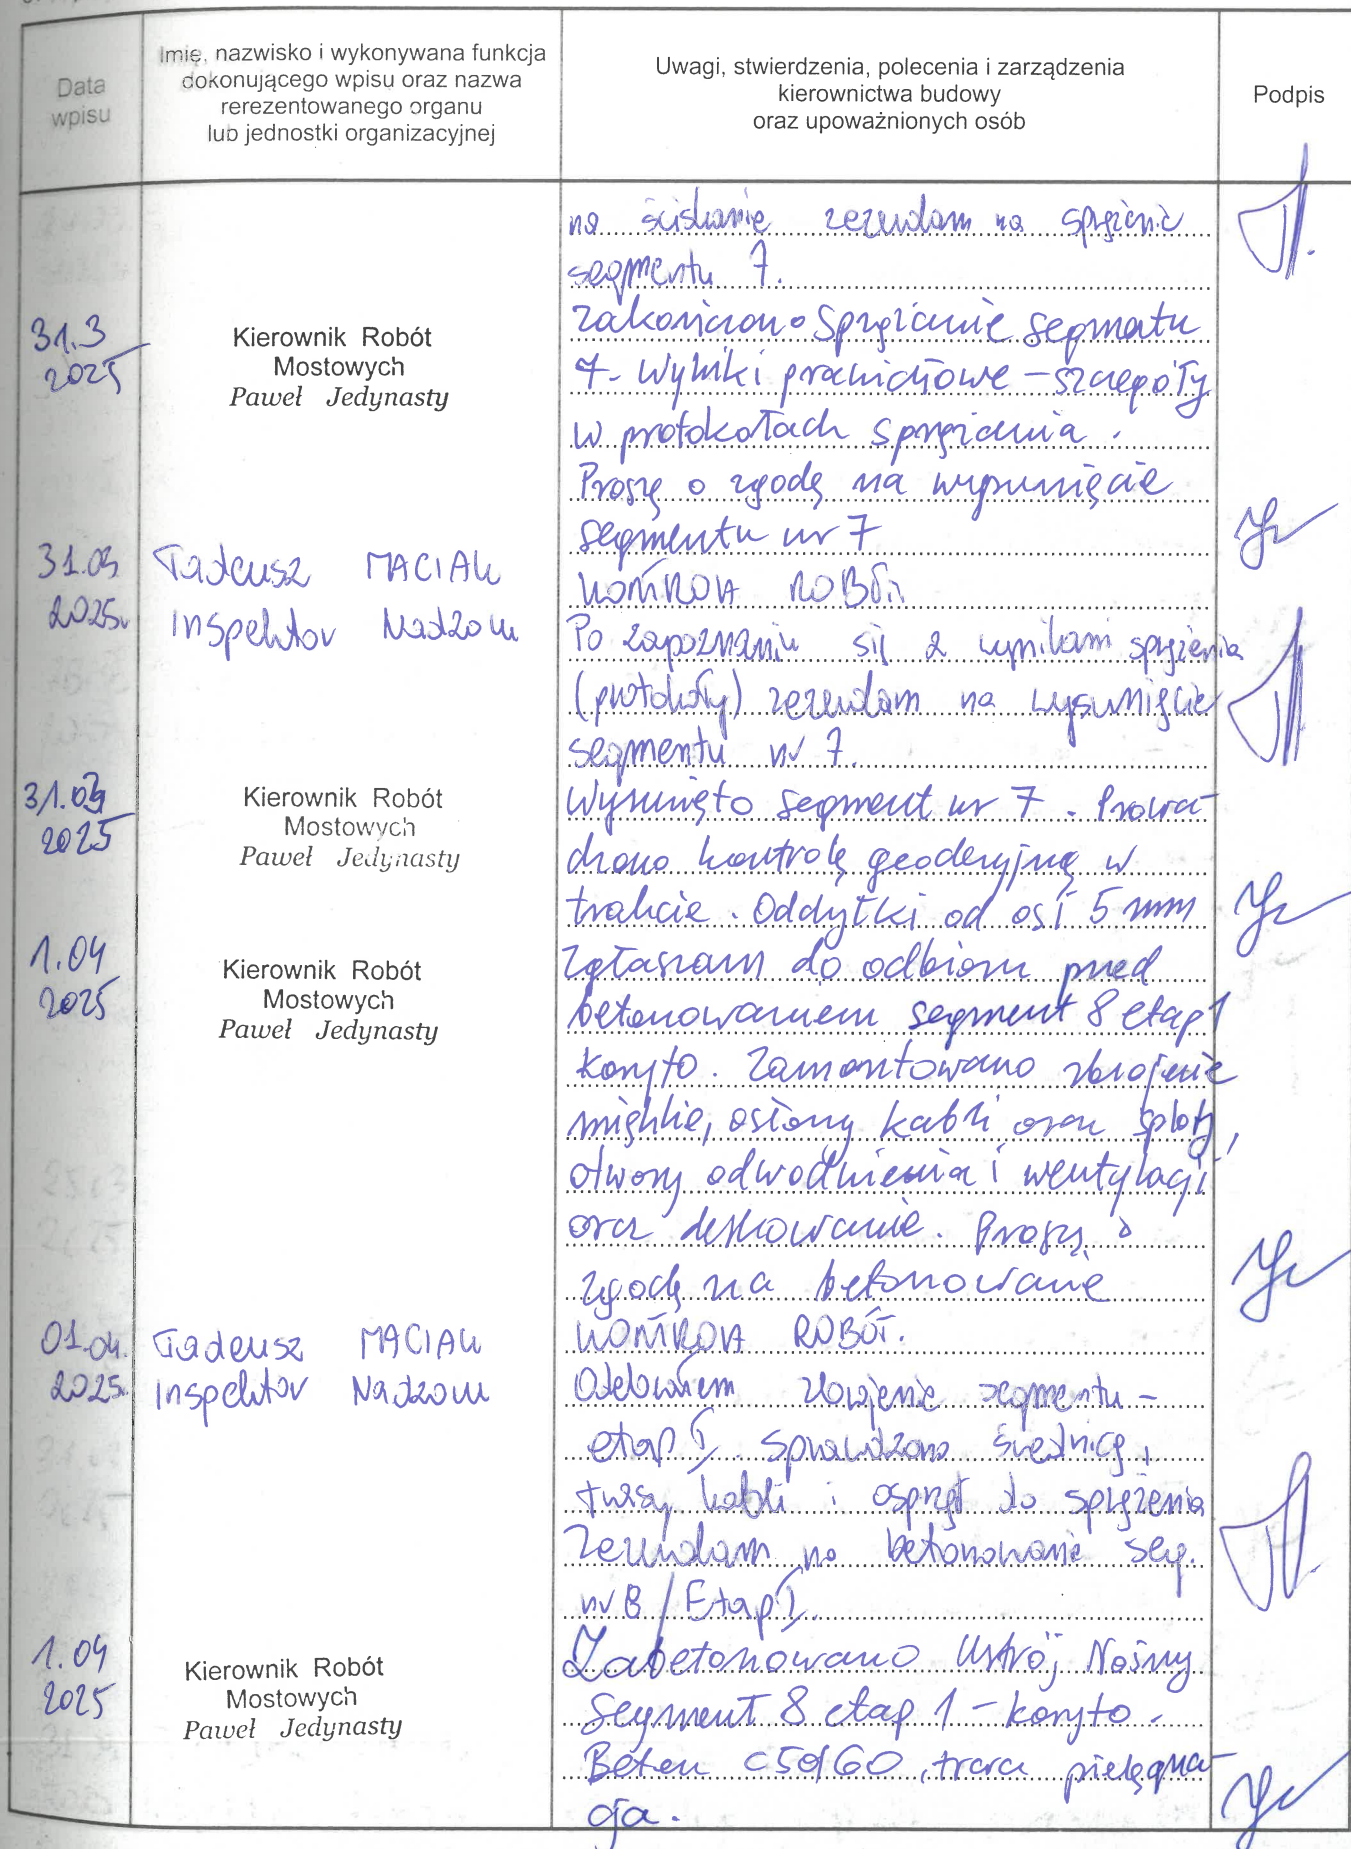 Data
wpisu
Imię, nazwisko i wykonywana funkcja
dokonującego wpisu oraz nazwa
rerezentowanego organu
lub jednostki organizacyjnej
Uwagi, stwierdzenia, polecenia i zarządzenia
kierownictwa budowy
oraz upoważnionych osób
Podpis
na ściskanie zezwalam na sprężenie
segmentu 7.
31.3
2025
Kierownik Robót
Mostowych
Paweł Jedynasty
Zakończono sprężanie segmentu
7. Wyniki prawidłowe - szczegóły
w protokołach sprężania.
Proszę o zgodę na wysunięcie
segmentu nr 7
31.03.
2025r.
Tadeusz MACIAK
Inspektor Nadzoru
KONTROLA ROBÓT.
Po zapoznaniu się z wynikami sprężenia
(protokoły) zezwalam na wysunięcie
segmentu nr 7.
31.03
2025
Kierownik Robót
Mostowych
Paweł Jedynasty
Wysunięto segment nr 7. Prowa-
dzono kontrolę geodezyjną w
trakcie. Odchyłki od osi 5 mm
1.04
2025
Kierownik Robót
Mostowych
Paweł Jedynasty
Zgłaszam do odbioru przed
betonowaniem segment 8 etap 1
koryto. Zamontowano zbrojenie
miękkie, osłony kabli oraz sploty,
otwory odwodnienia i wentylacji
oraz deskowanie. Proszę o
zgodę na betonowanie
01.04.
2025.
Tadeusz MACIAK
Inspektor Nadzoru
KONTROLA ROBÓT.
Odebrałem zbrojenie segmentu -
etap I, sprawdzono średnicę,
trasy kabli i osprzęt do sprężenia
Zezwalam na betonowanie seg.
nr 8 / Etap I.
1.04
2025
Kierownik Robót
Mostowych
Paweł Jedynasty
Zabetonowano Ustrój Nośny
Segment 8 etap 1 - koryto.
Beton C50/60, trwa pielęgna-
cja.